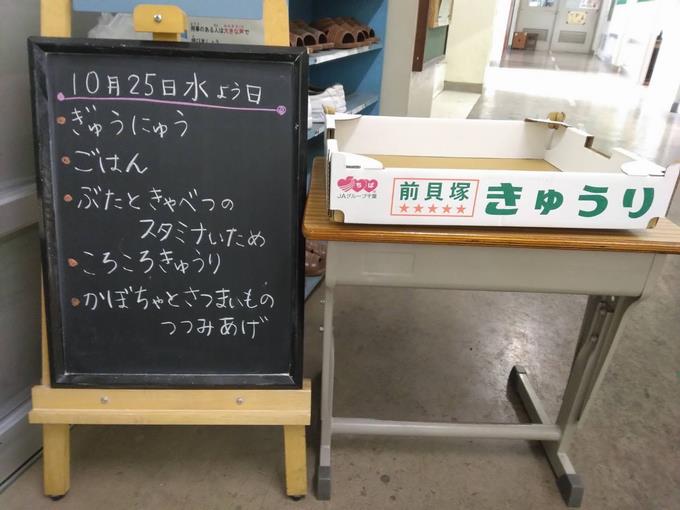 10月25日水よう日
ぎゅうにゅう
ごはん
ぶたときゃべつの
スタミナいため
ころころきゅうり
かぼちゃとさつまいもの
つつみあげ
ちば
JAグループ千葉
前貝塚
★★★★★
きゅうり